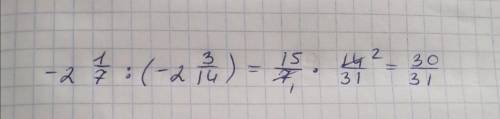 -2 1/7 : (-2 3/14) = 15/7 1 · 14 2/31 = 30/31